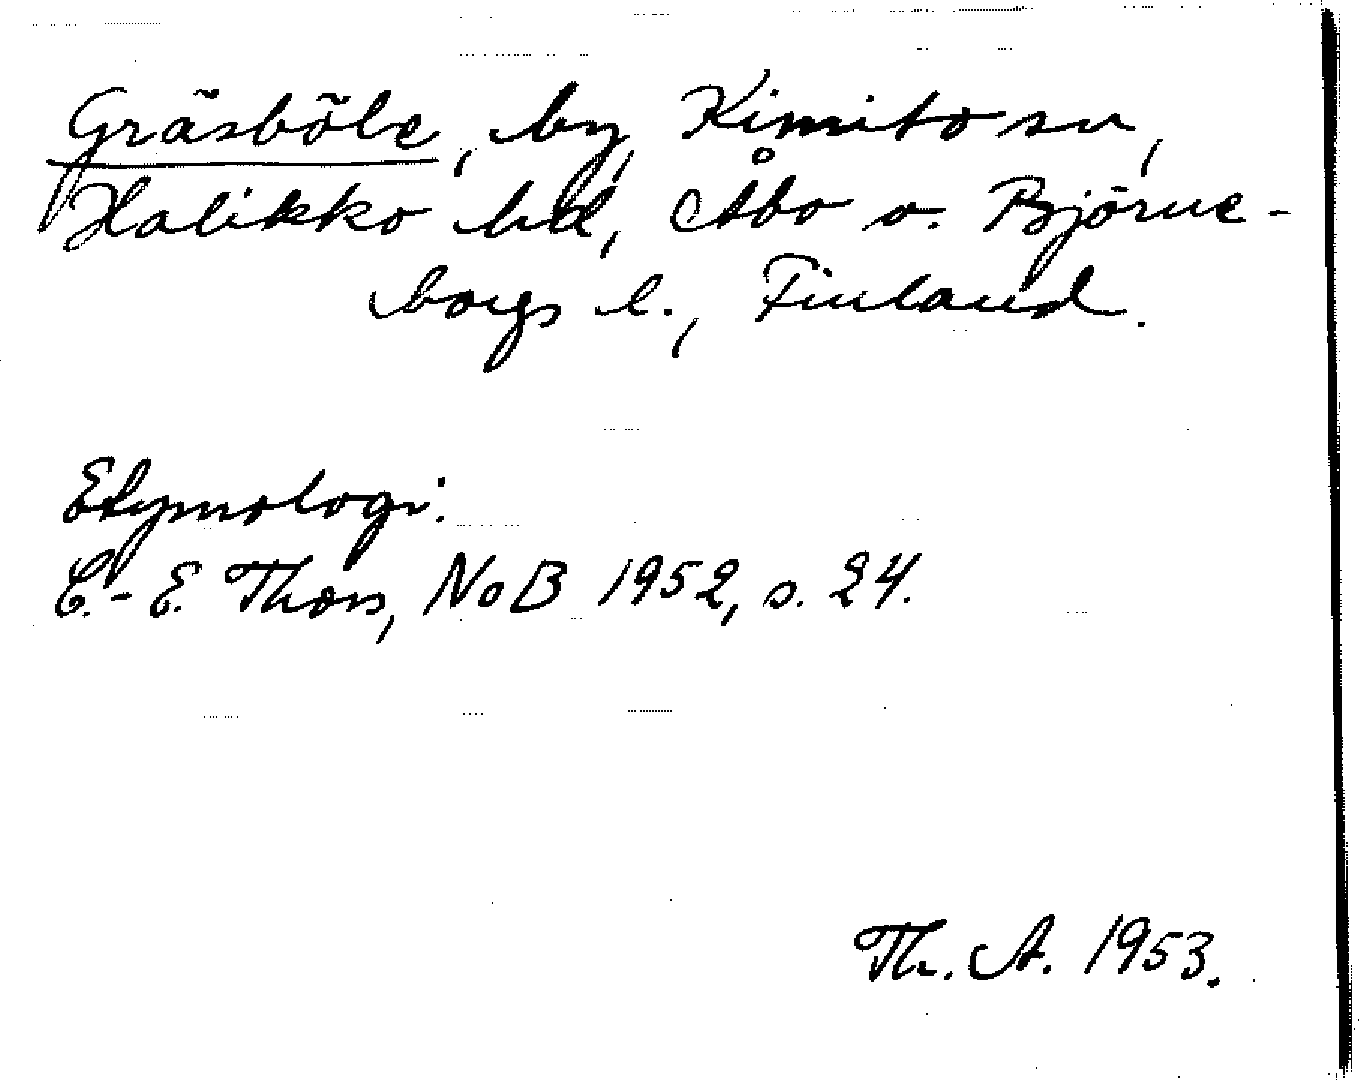 Gräsböle, by, Kimito sn,
Halikko hd, Åbo o. Björne-
borgs l., Finland.
Etymologi:
C.-E. Thors, NoB 1952, s. 24.
Th. A. 1953.